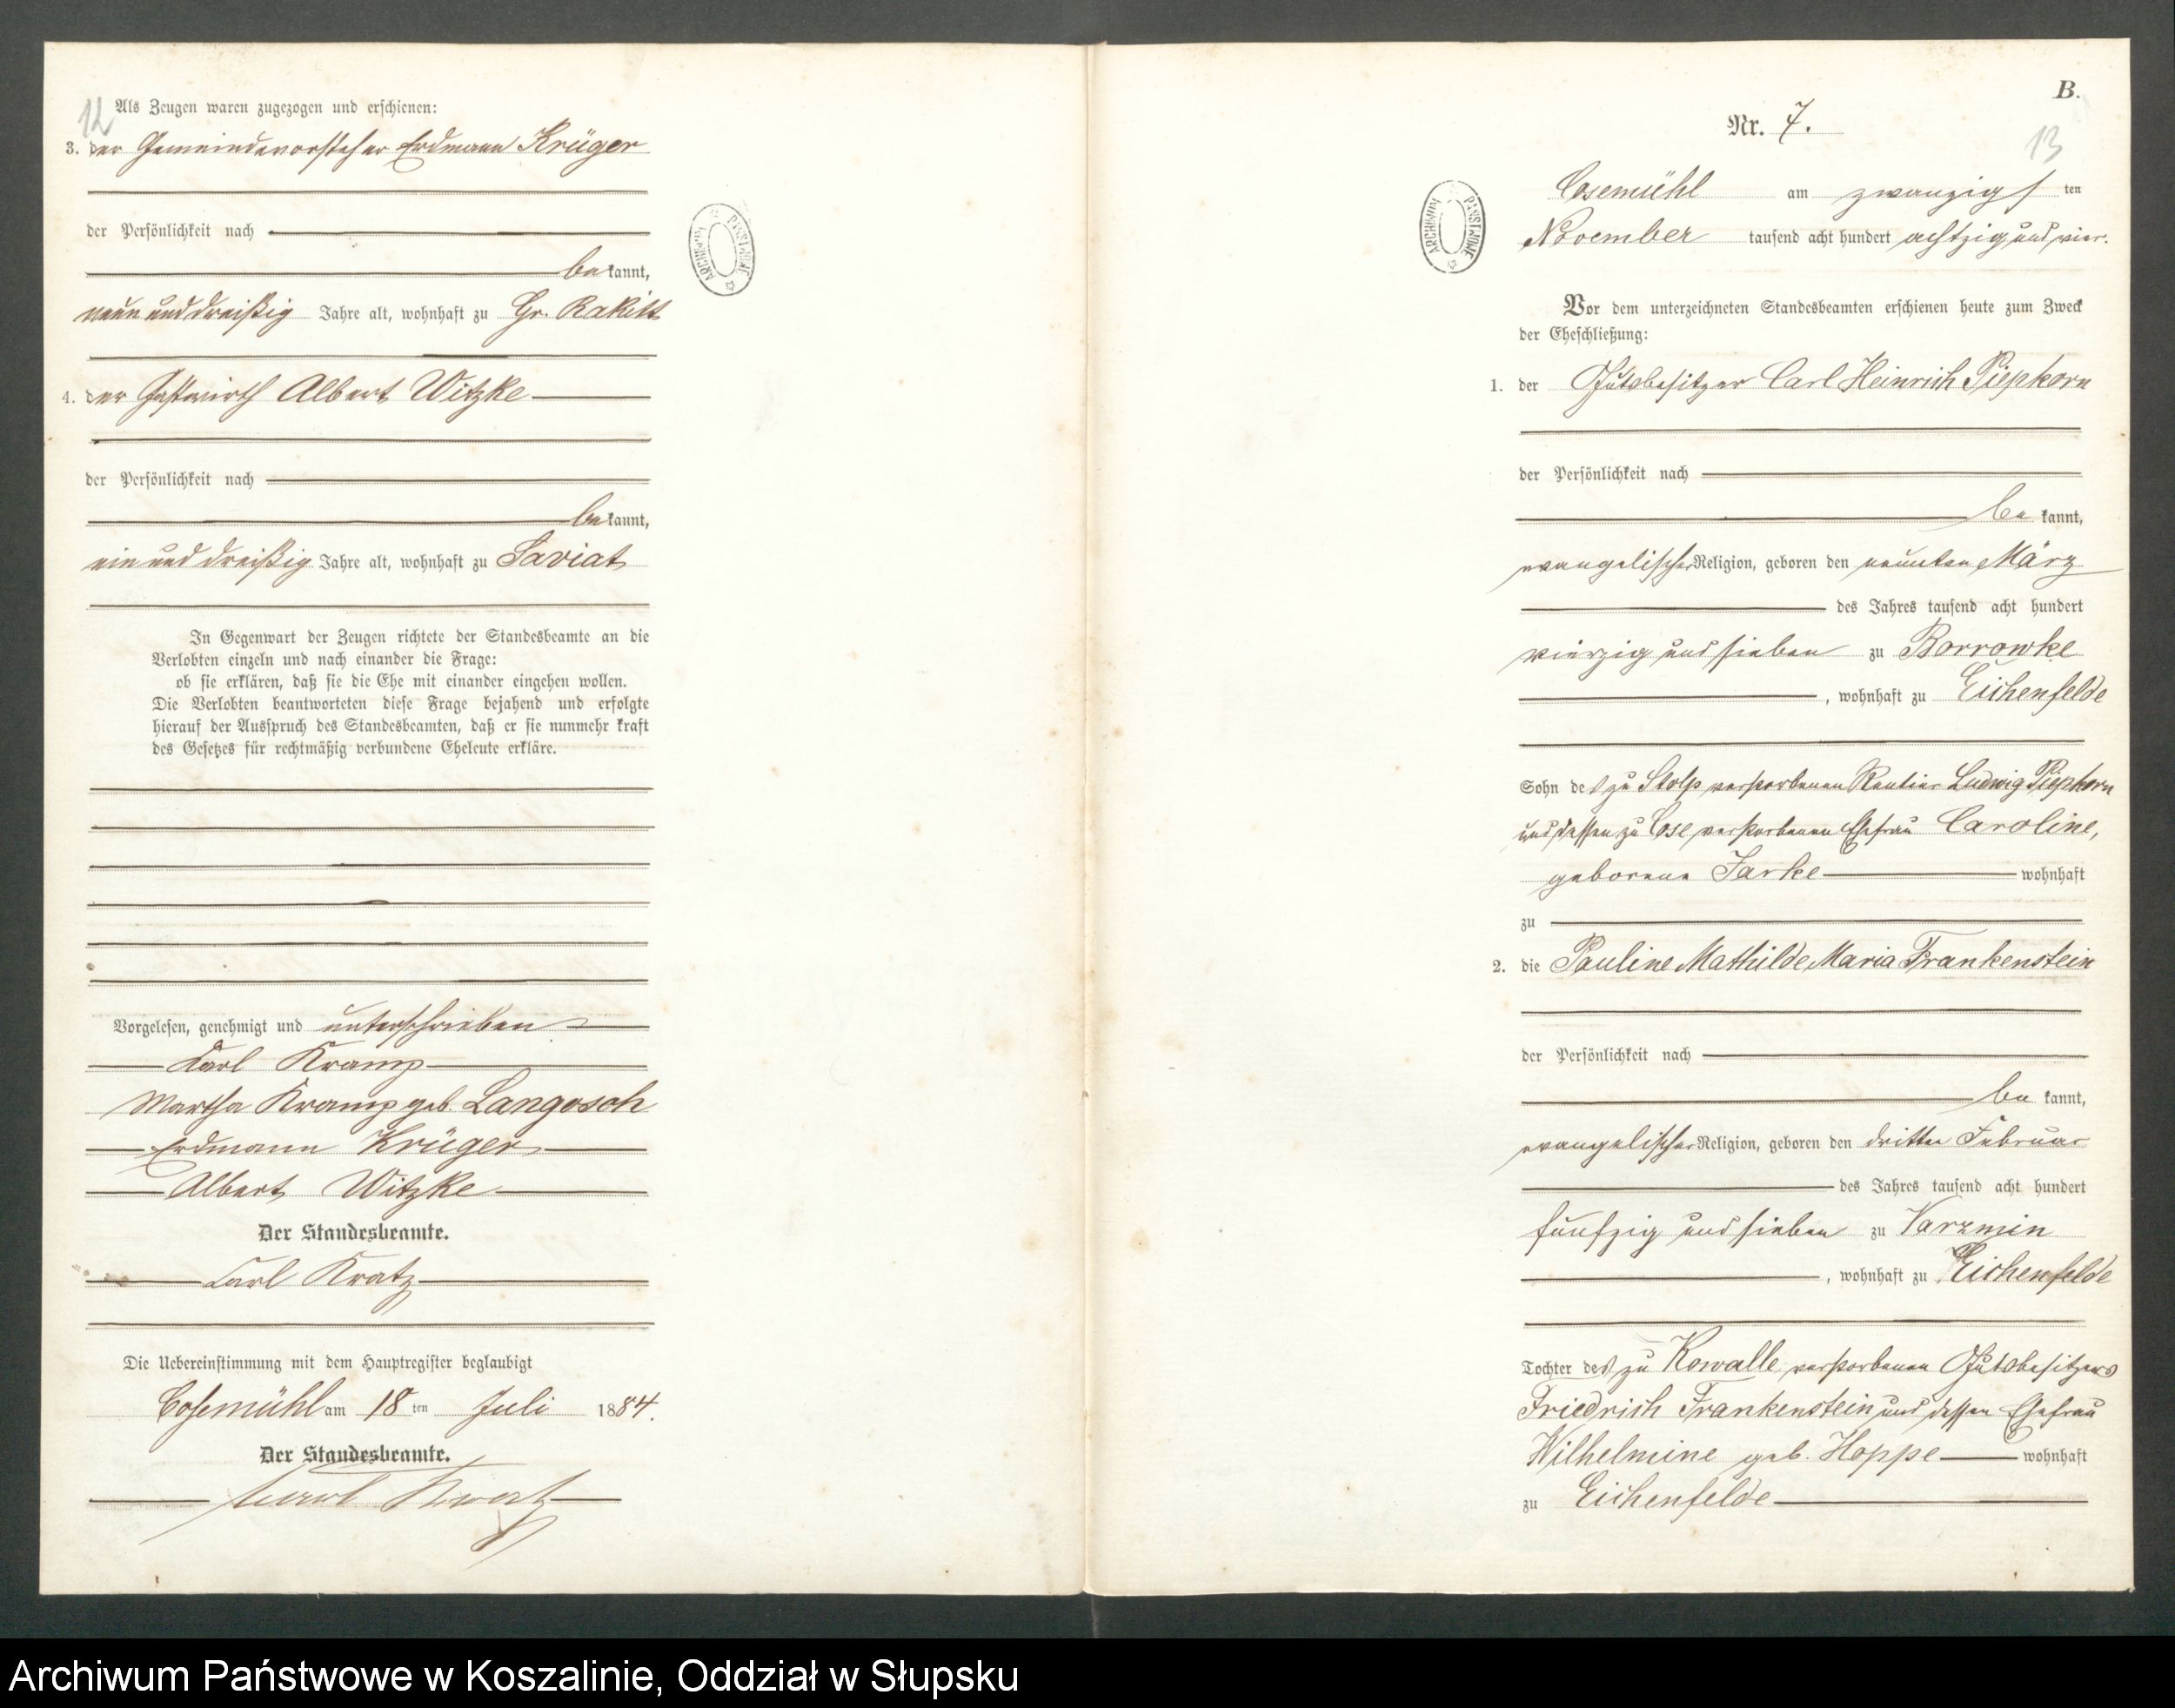 12
Als Zeugen waren zugezogen und erschienen:
3. der Gemeindevorsteher Erdmann Krüger
der Persönlichkeit nach
bekannt,
neun und dreißig Jahre alt, wohnhaft zu Gr. Rakitt
4. der Gastwirth Albert Witzke
der Persönlichkeit nach
bekannt,
ein und dreißig Jahre alt, wohnhaft zu Saviat
In Gegenwart der Zeugen richtete der Standesbeamte an die
Verlobten einzeln und nach einander die Frage:
ob sie erklären, daß sie die Ehe mit einander eingehen wollen.
Die Verlobten beantworteten diese Frage bejahend und erfolgte
hierauf der Ausspruch des Standesbeamten, daß er sie nunmehr kraft
des Gesetzes für rechtmäßig verbundene Eheleute erkläre.
Vorgelesen, genehmigt und unterschrieben
Karl Kramp
Martha Kramp geb. Langosch
Erdmann Krüger
Albert Witzke
Der Standesbeamte.
Karl Kratz
Die Uebereinstimmung mit dem Hauptregister beglaubigt
Cosemühl am 18ten Juli 1884.
Der Standesbeamte.
Karl Kratz
ARCHIWUM PAŃSTWOWE
B.
Nr. 7.
13
ARCHIWUM PAŃSTWOWE
Cosemühl am zwanzigsten
November tausend acht hundert achtzig und vier.
Vor dem unterzeichneten Standesbeamten erschienen heute zum Zweck
der Eheschließung:
1. der Gutsbesitzer Carl Heinrich Piepkorn
der Persönlichkeit nach
bekannt,
evangelischer Religion, geboren den neunten März
des Jahres tausend acht hundert
vierzig und sieben zu Borrowke
, wohnhaft zu Eichenfelde
Sohn des zu Stolp verstorbenen Rentier Ludwig Piepkorn
und dessen zu Cose verstorbenen Ehefrau Caroline,
geborene Jarke wohnhaft
zu
2. die Pauline Mathilde Maria Frankenstein
der Persönlichkeit nach
bekannt,
evangelischer Religion, geboren den dritten Februar
des Jahres tausend acht hundert
fünfzig und sieben zu Varzmin
, wohnhaft zu Eichenfelde
Tochter des zu Kowalle verstorbenen Gutsbesitzers
Friedrich Frankenstein und dessen Ehefrau
Wilhelmine geb. Hoppe wohnhaft
zu Eichenfelde
Archiwum Państwowe w Koszalinie, Oddział w Słupsku